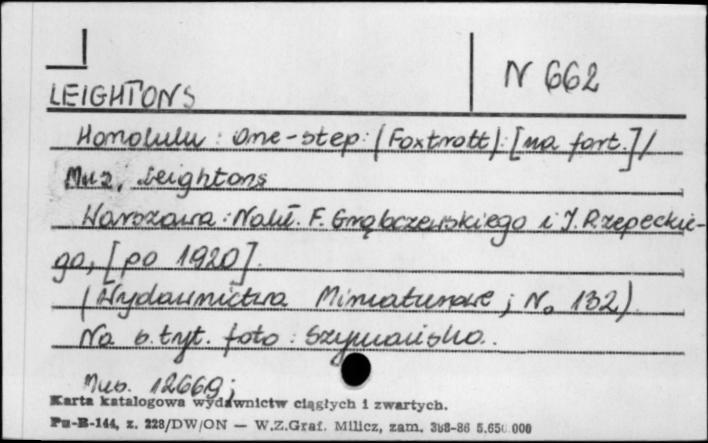 N 662
LEIGHTONS
Honolulu : One-step : (Foxtrott) : [na fort.] /
Muz. Leightons
Warszawa : Nakł. F. Grąbczewskiego i J. Rzepeckie-
go, [po 1920].
(Wydawnictwa Miniaturowe ; No 132)
Na s. tyt. foto : Szymańska.
Mus. 12669 ;
Karta katalogowa wydawnictw ciągłych i zwartych.
Pu-B-144, z. 228/DW/ON — W.Z.Graf. Milicz, zam. 388-86 5.650.000